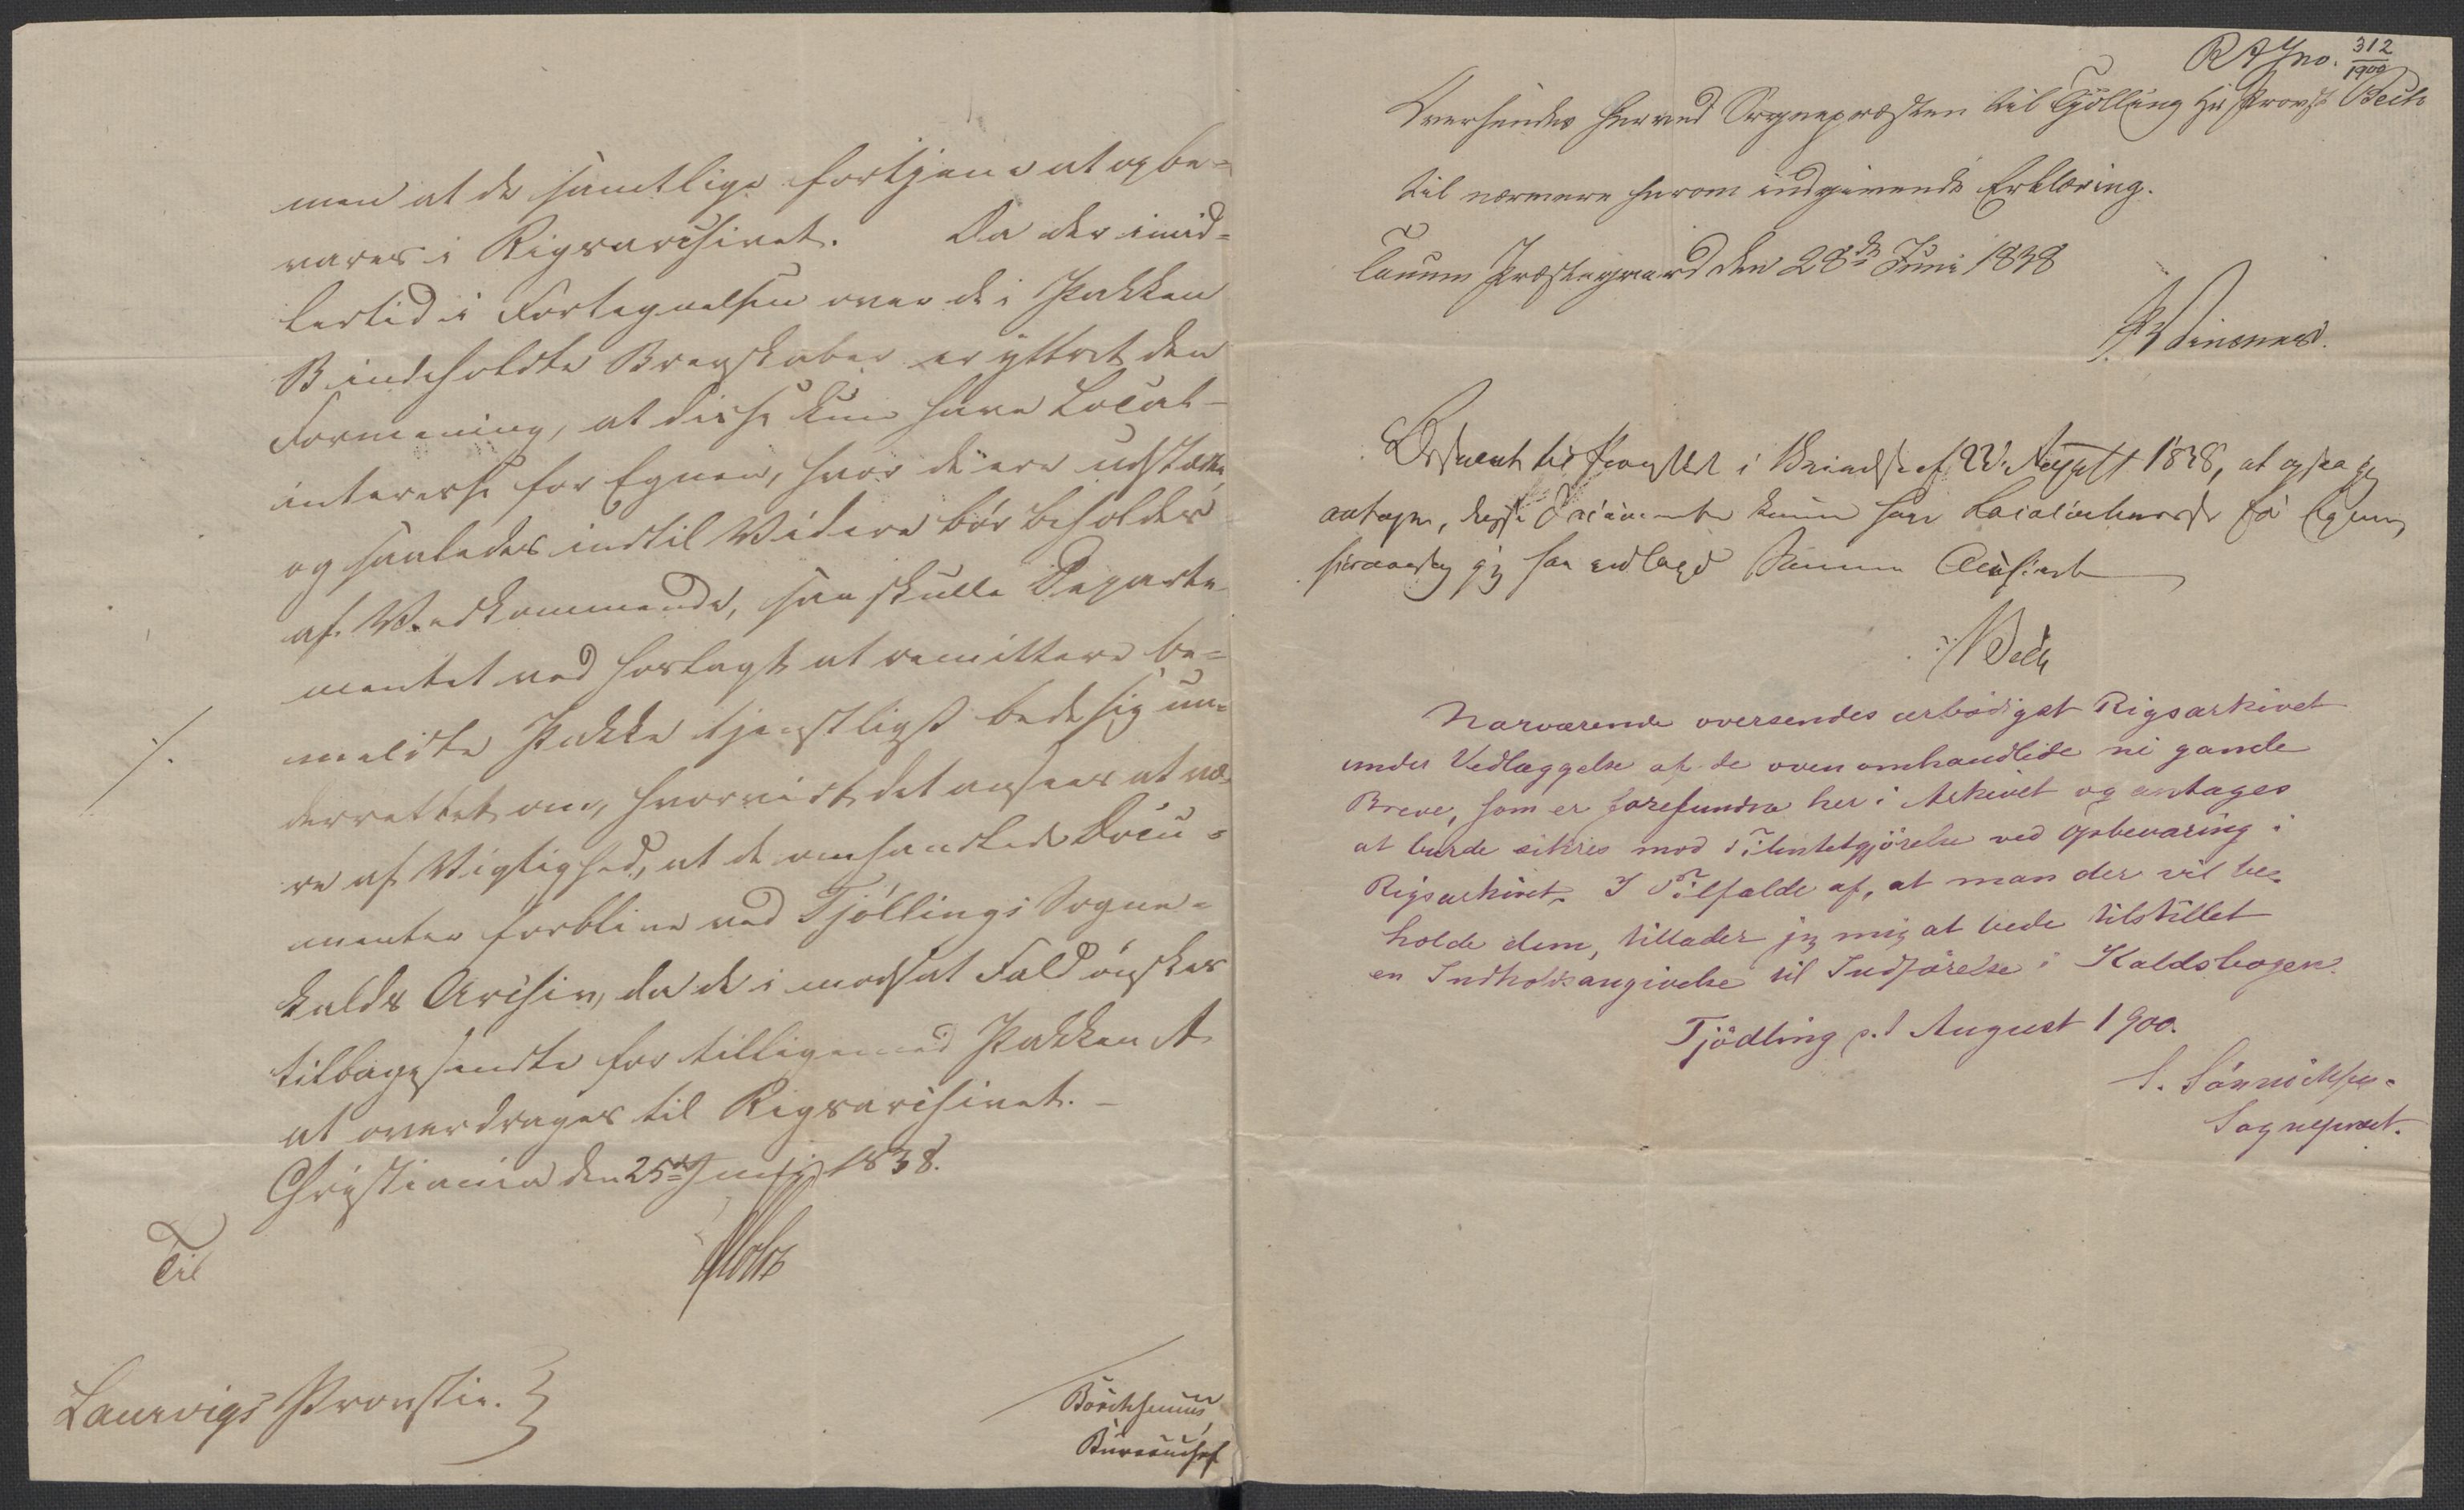 men at de samtlige fortjene at opbe-
vares i Rigsarchivet. Da der imid-
lertid i Fortegnelsen over de i Pakken
B indeholdte Brevskaber er yttret den
Formening, at disse kun have Local-
interesse for Egnen, hvor de ere udstædte,
og saaledes indtil Videre bør beholdes
af Vedkommende, saa skulle Departe-
mentet ved Forlagt at remittere be-
meldte Pakke tjenstligst bede sig un-
derrettet om, hvorvidt det ansees at væ-
re af Vigtighed, at de omhandlede Docu-
menter forblive ved Tjøllings Sogne-
kalds Archiv, da de i modsat Fald ønskes
tilbagesendte for tilligemed Pakken A
at overdrages til Rigsarchivet. -
Christiania den 25de Juni 1838.
Holst
Til
Laurvigs Provstie.
Bureauchef
RA Jno. 312/1900
Oversendes herved Sognepræsten til Tjølling Hr Provst Bech
til nærmere herom indgivende Erklæring.
Tanum Præstegaard den 28de Juni 1838
Erklæret til Provstiet i Skrivelse af 22. August 1838, at ogsaa jeg
antager, disse Documenter kunne have Localinteresse for Egnen,
hvorvel jeg har nedlagt Samme Archivet
Bech
Nærværende oversendes ærbødigst Rigsarkivet
under Vedlæggelse af de oven omhandlede ni gamle
Breve, som er forefundne her i Arkivet og antages
at burde sikres mod Tilintetgjørelse ved Opbevaring i
Rigsarkivet. I Tilfælde af, at man der vil be-
holde dem, tillader jeg mig at bede tilstillet
en Indholdsangivelse til Indførelse i Kaldsbogen.
Tjødling p. 1 August 1900.
S. Sørnichsen.
Sognepræst.